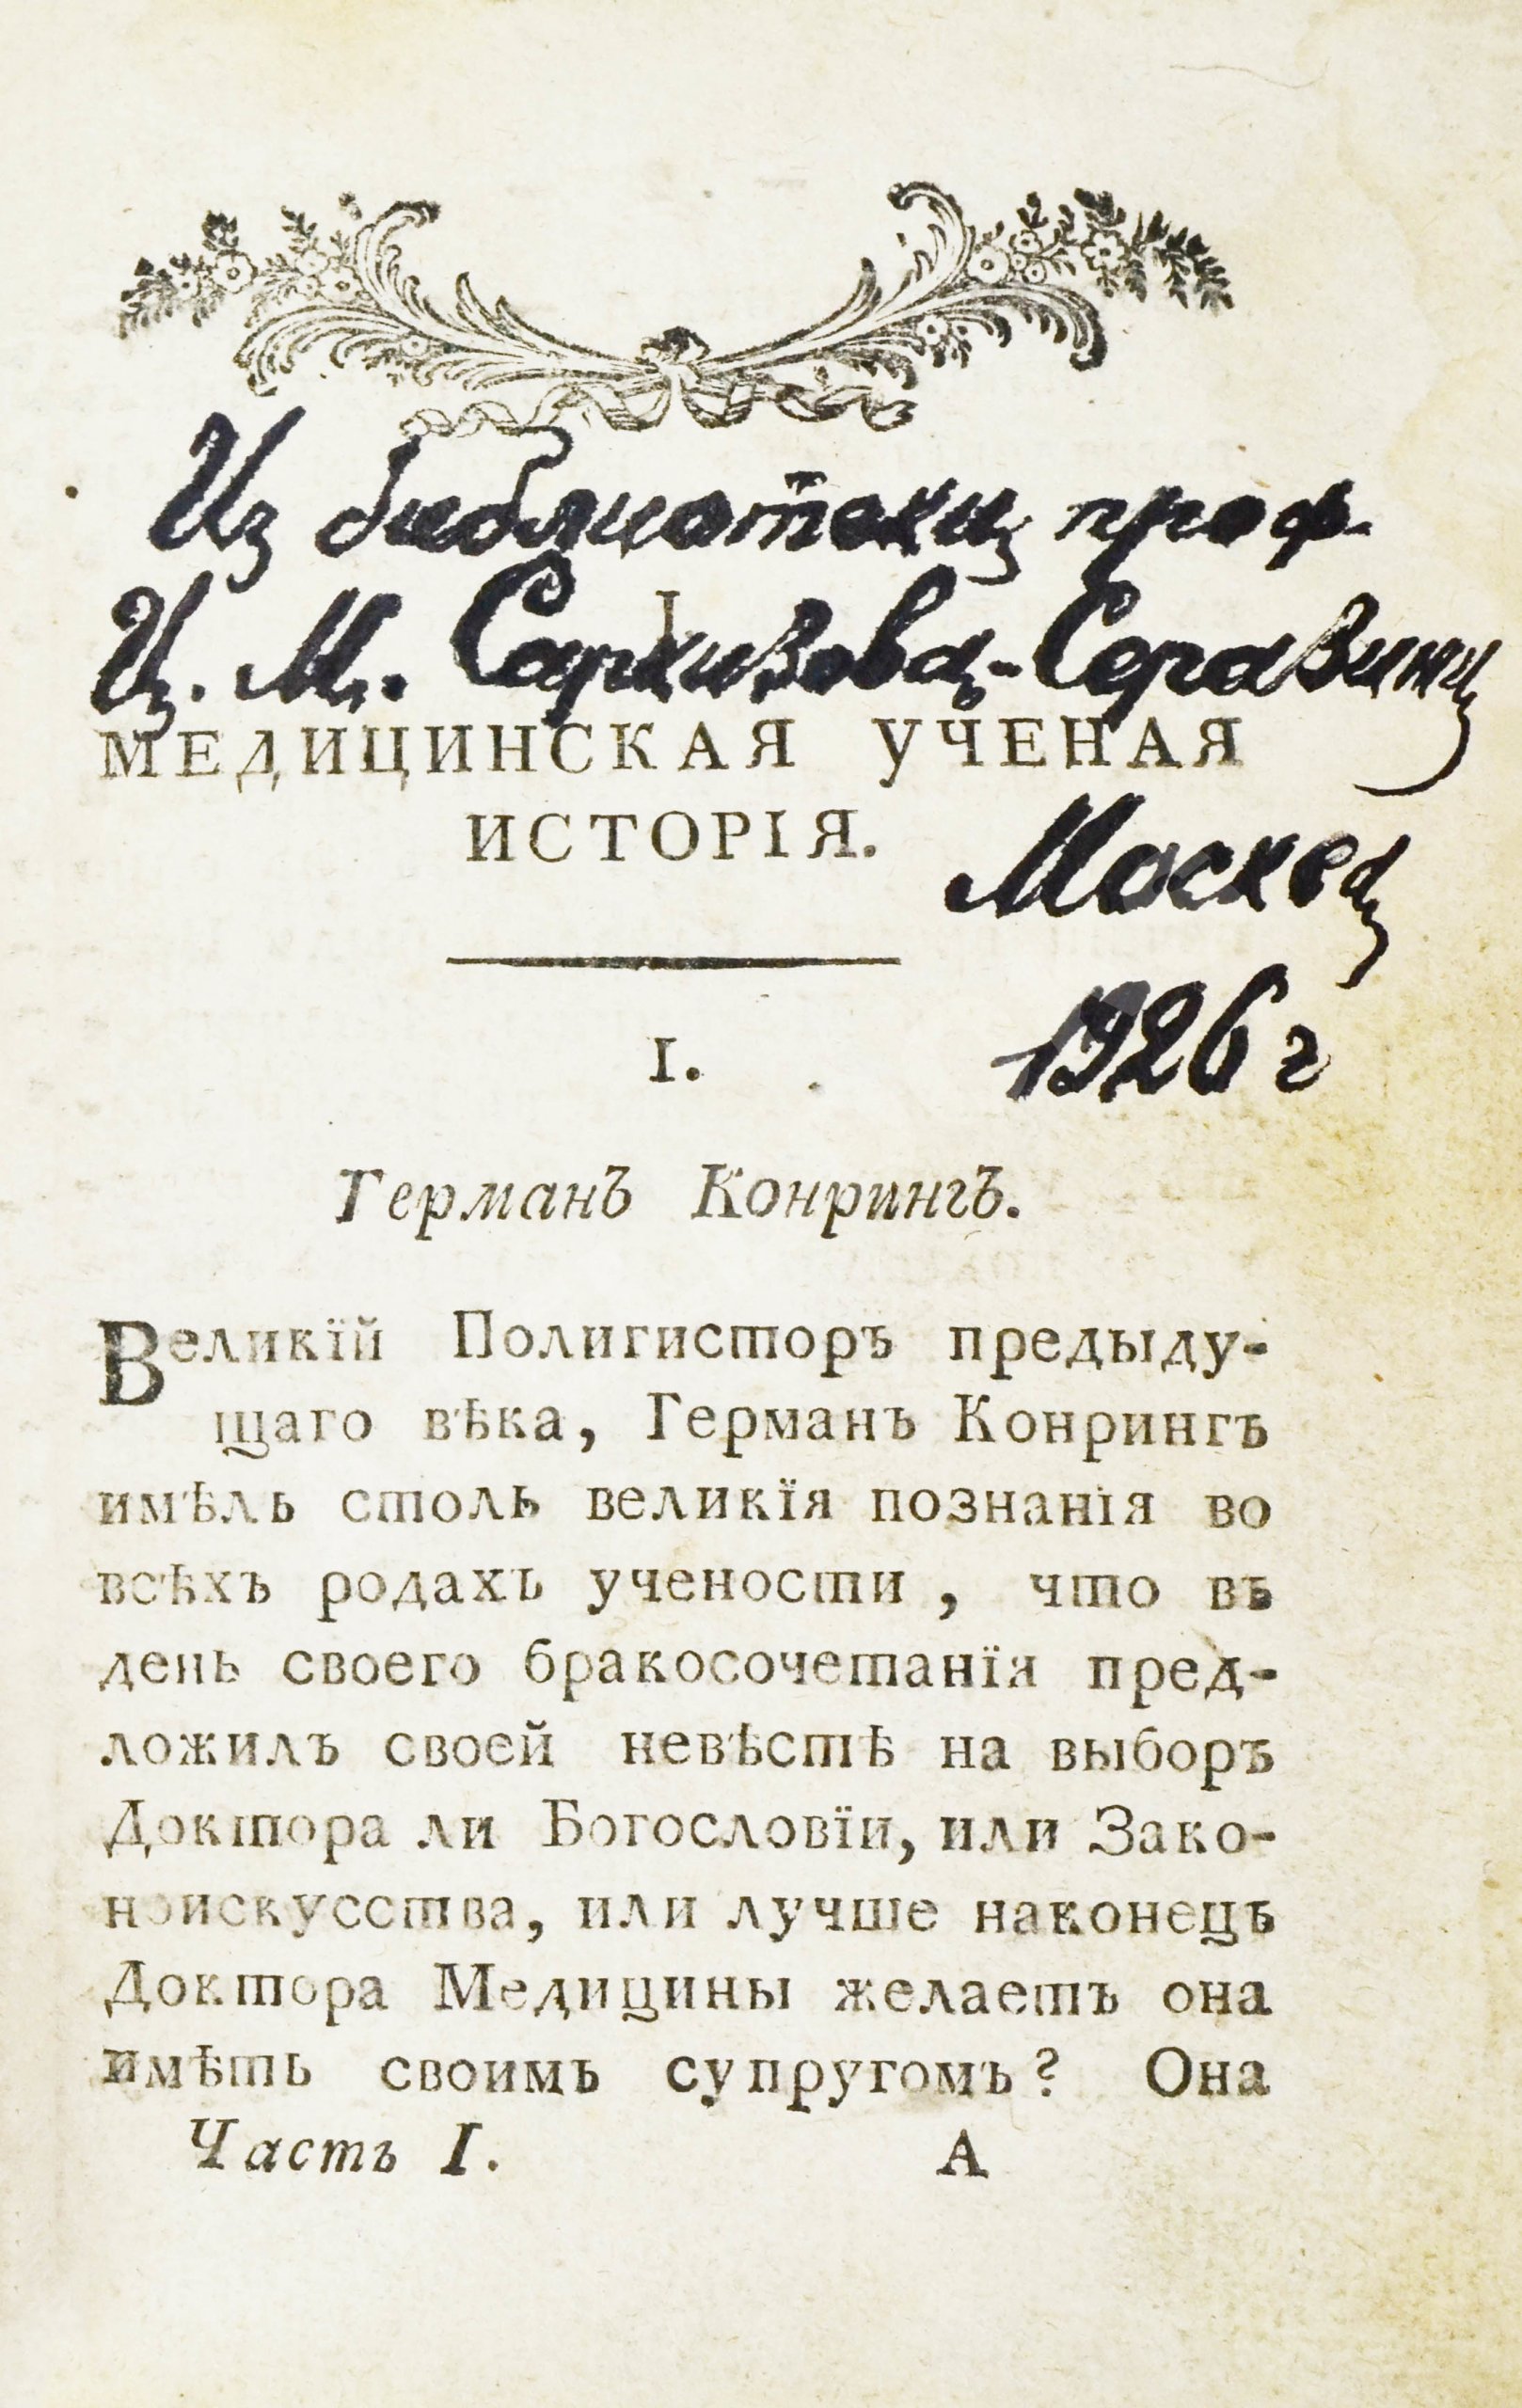 Из библиотеки проф.
I
И. М. Саркизова-Серазини
МЕДИЦИНСКАЯ УЧЕНАЯ
ИСТОРІЯ.
Москва
1926 г
I.
Германъ Конрингъ.
Великїй Полигисторъ предыду-
щаго вѣка, Германъ Конрингъ
имѣлъ столь великїя познанїя во
всѣхъ родахъ учености, что въ
день своего бракосочетанїя пред-
ложилъ своей невѣстѣ на выборъ
Доктора ли Богословїи, или Зако-
ноискусства, или лучше наконецъ
Доктора Медицины желаетъ она
имѣть своимъ супругомъ? Она
Часть I. А